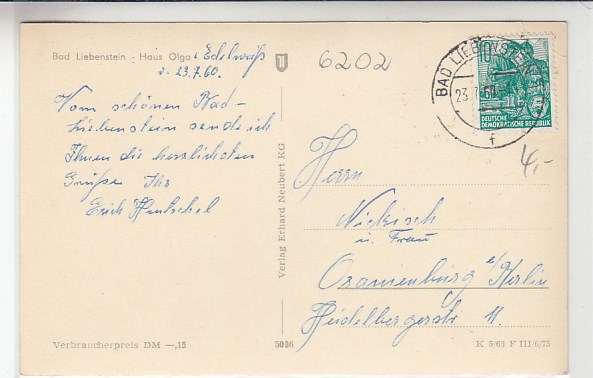 Bad Liebenstein · Haus Olga Edelweiß
d. 23.7.60.
Vom schönen Bad-
Liebenstein sende ich
Ihnen die herzlichsten
Grüße Ihr
Erich Hentschel
Verbraucherpreis DM —,15
Verlag Erhard Neubert KG
5036
6202
BAD LIEBENSTEIN
23.7.60
f
10
DEUTSCHE
DEMOKRATISCHE REPUBLIK
4,-
Herrn
Nickisch
u. Frau
Oranienburg b/Berlin
Heidelbergerstr 11.
K 5/60 F III/6/75